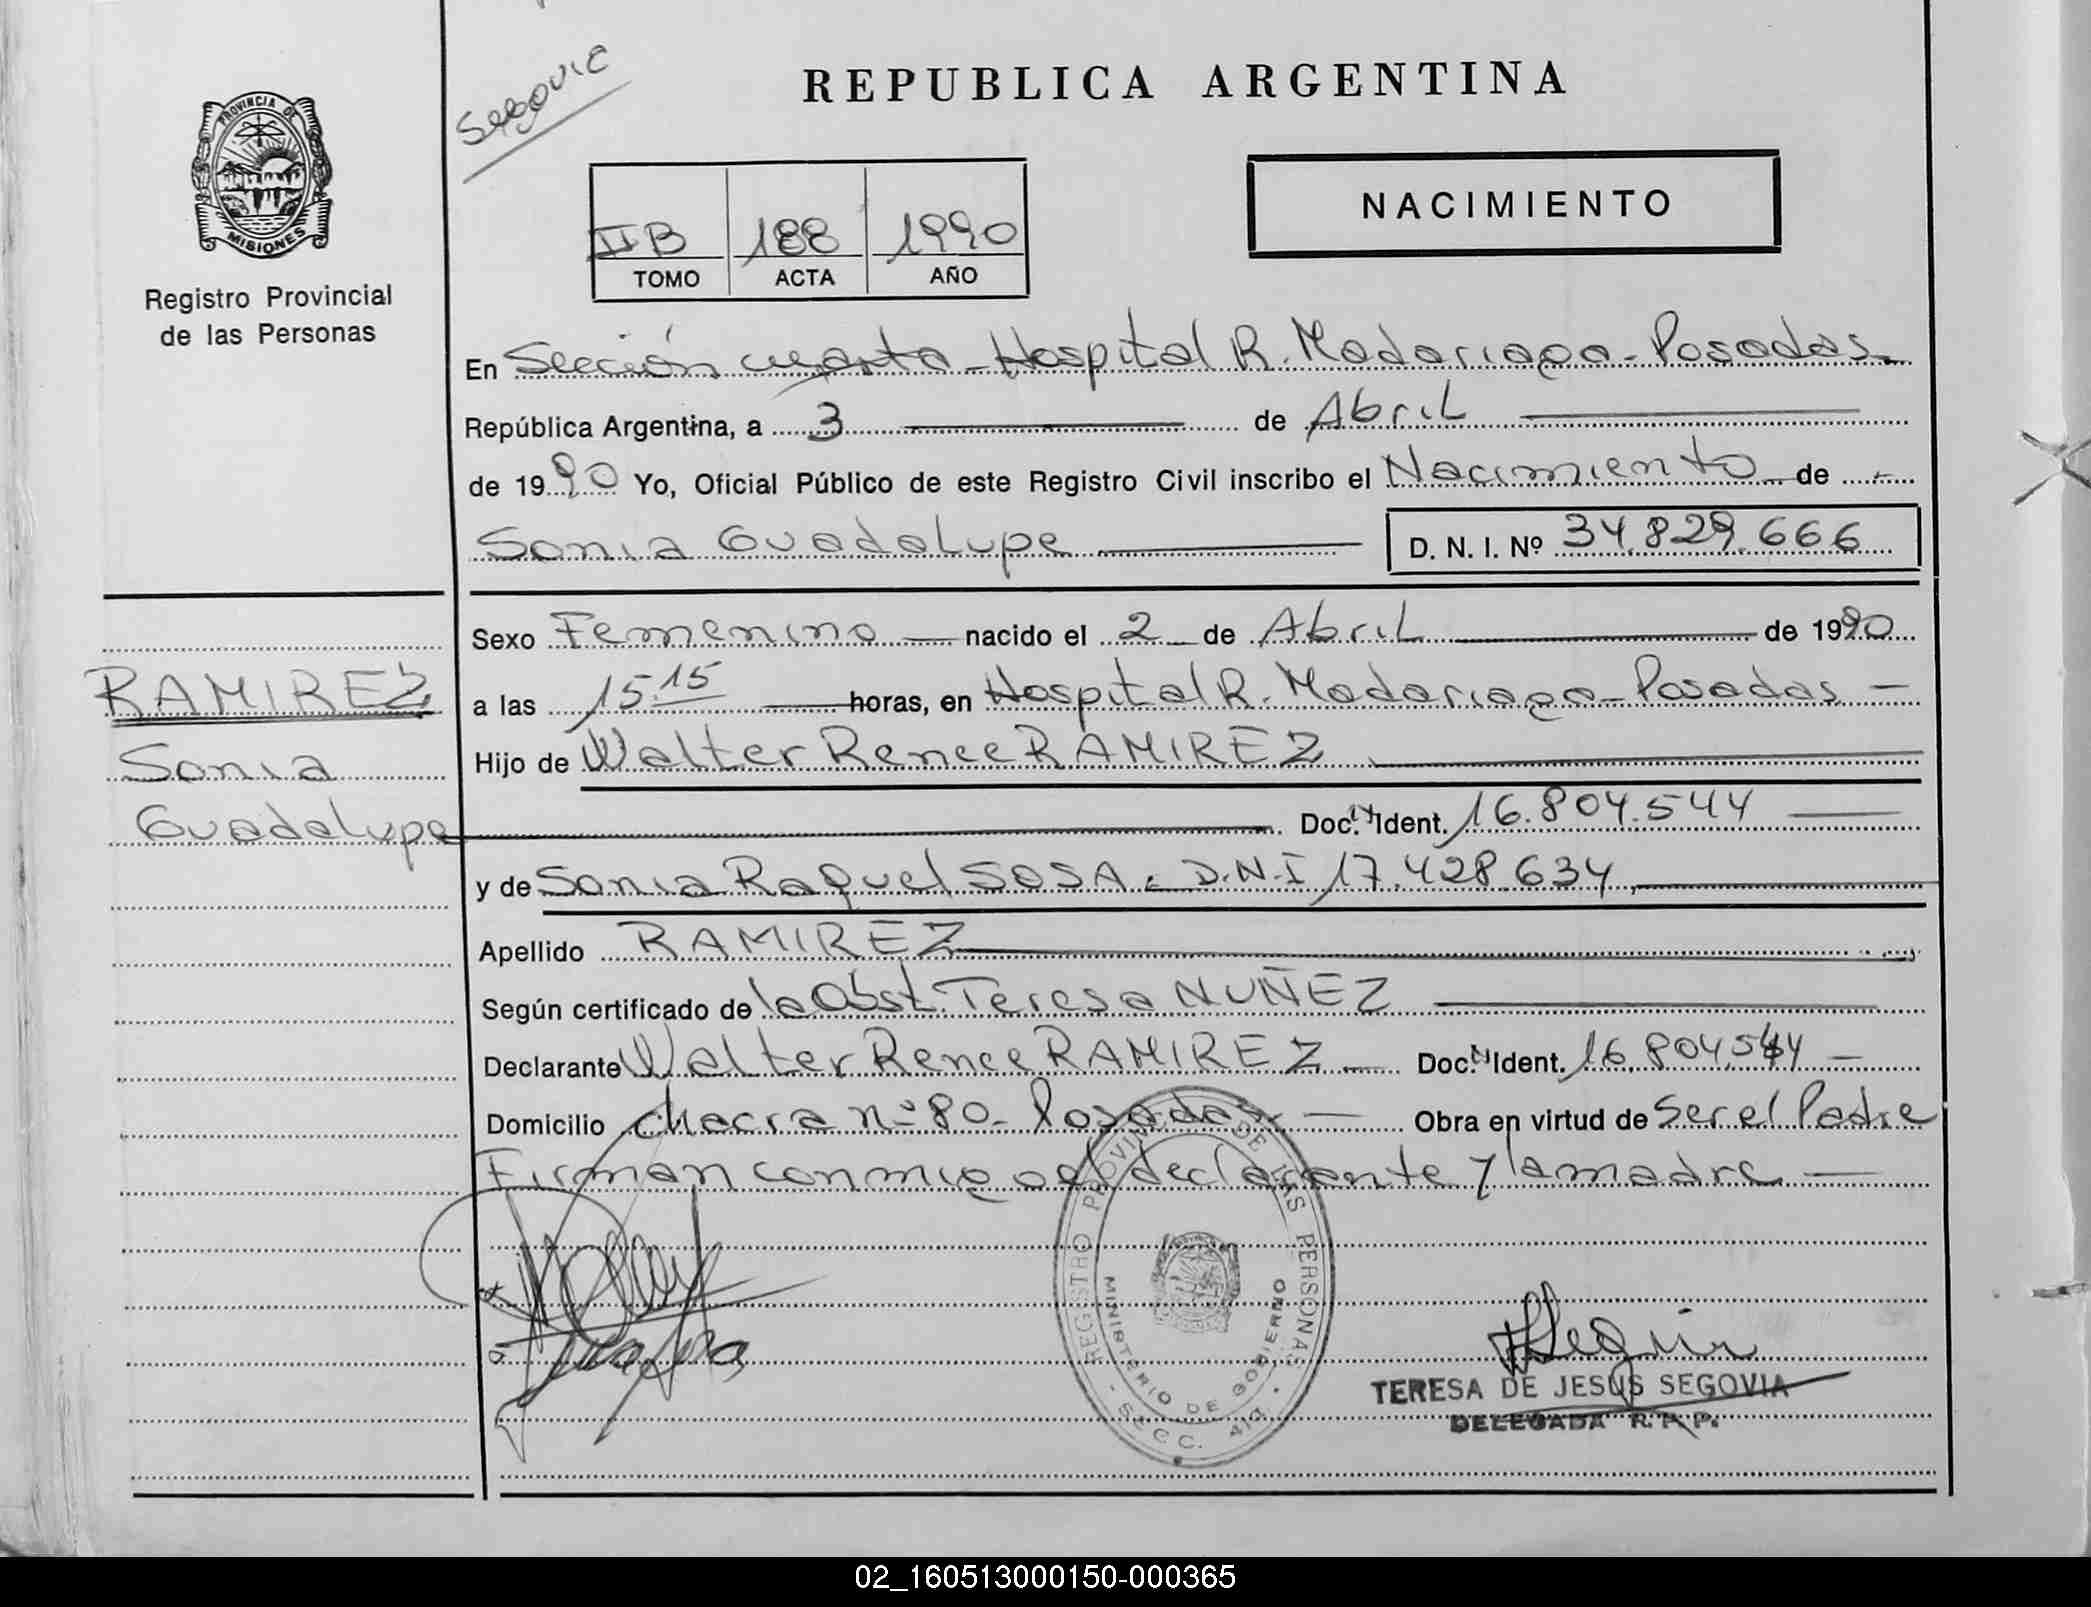 Segovia
REPUBLICA ARGENTINA
PROVINCIA DE
MISIONES
Registro Provincial
de las Personas
IIB 188 1990
TOMO ACTA AÑO
NACIMIENTO
En Sección cuarta - Hospital R. Madariaga - Posadas.
República Argentina, a 3 de Abril
de 1990 Yo, Oficial Público de este Registro Civil inscribo el Nacimiento de
Sonia Guadalupe D. N. I. Nº 34.829.666
Sexo Femenino nacido el 2 de Abril de 1990
a las 15.15 horas, en Hospital R. Madariaga - Posadas -
Hijo de Walter Renee RAMIREZ
Doc. Ident. 16.804.544
y de Sonia Raquel SOSA. D.N.I 17.428.634
Apellido RAMIREZ
Según certificado de la Obst. Teresa NUÑEZ
Declarante Walter Renee RAMIREZ Doc. Ident. 16.804.544
Domicilio chacra nº 80 - Posadas. Obra en virtud de Ser el Padre
Firman conmigo el declarante y la madre
RAMIREZ
Sonia
Guadalupe
REGISTRO PROVINCIAL DE LAS PERSONAS
MINISTERIO DE GOBIERNO
SECC. 4ta.
TERESA DE JESUS SEGOVIA
DELEGADA R.P.P.
02_160513000150-000365